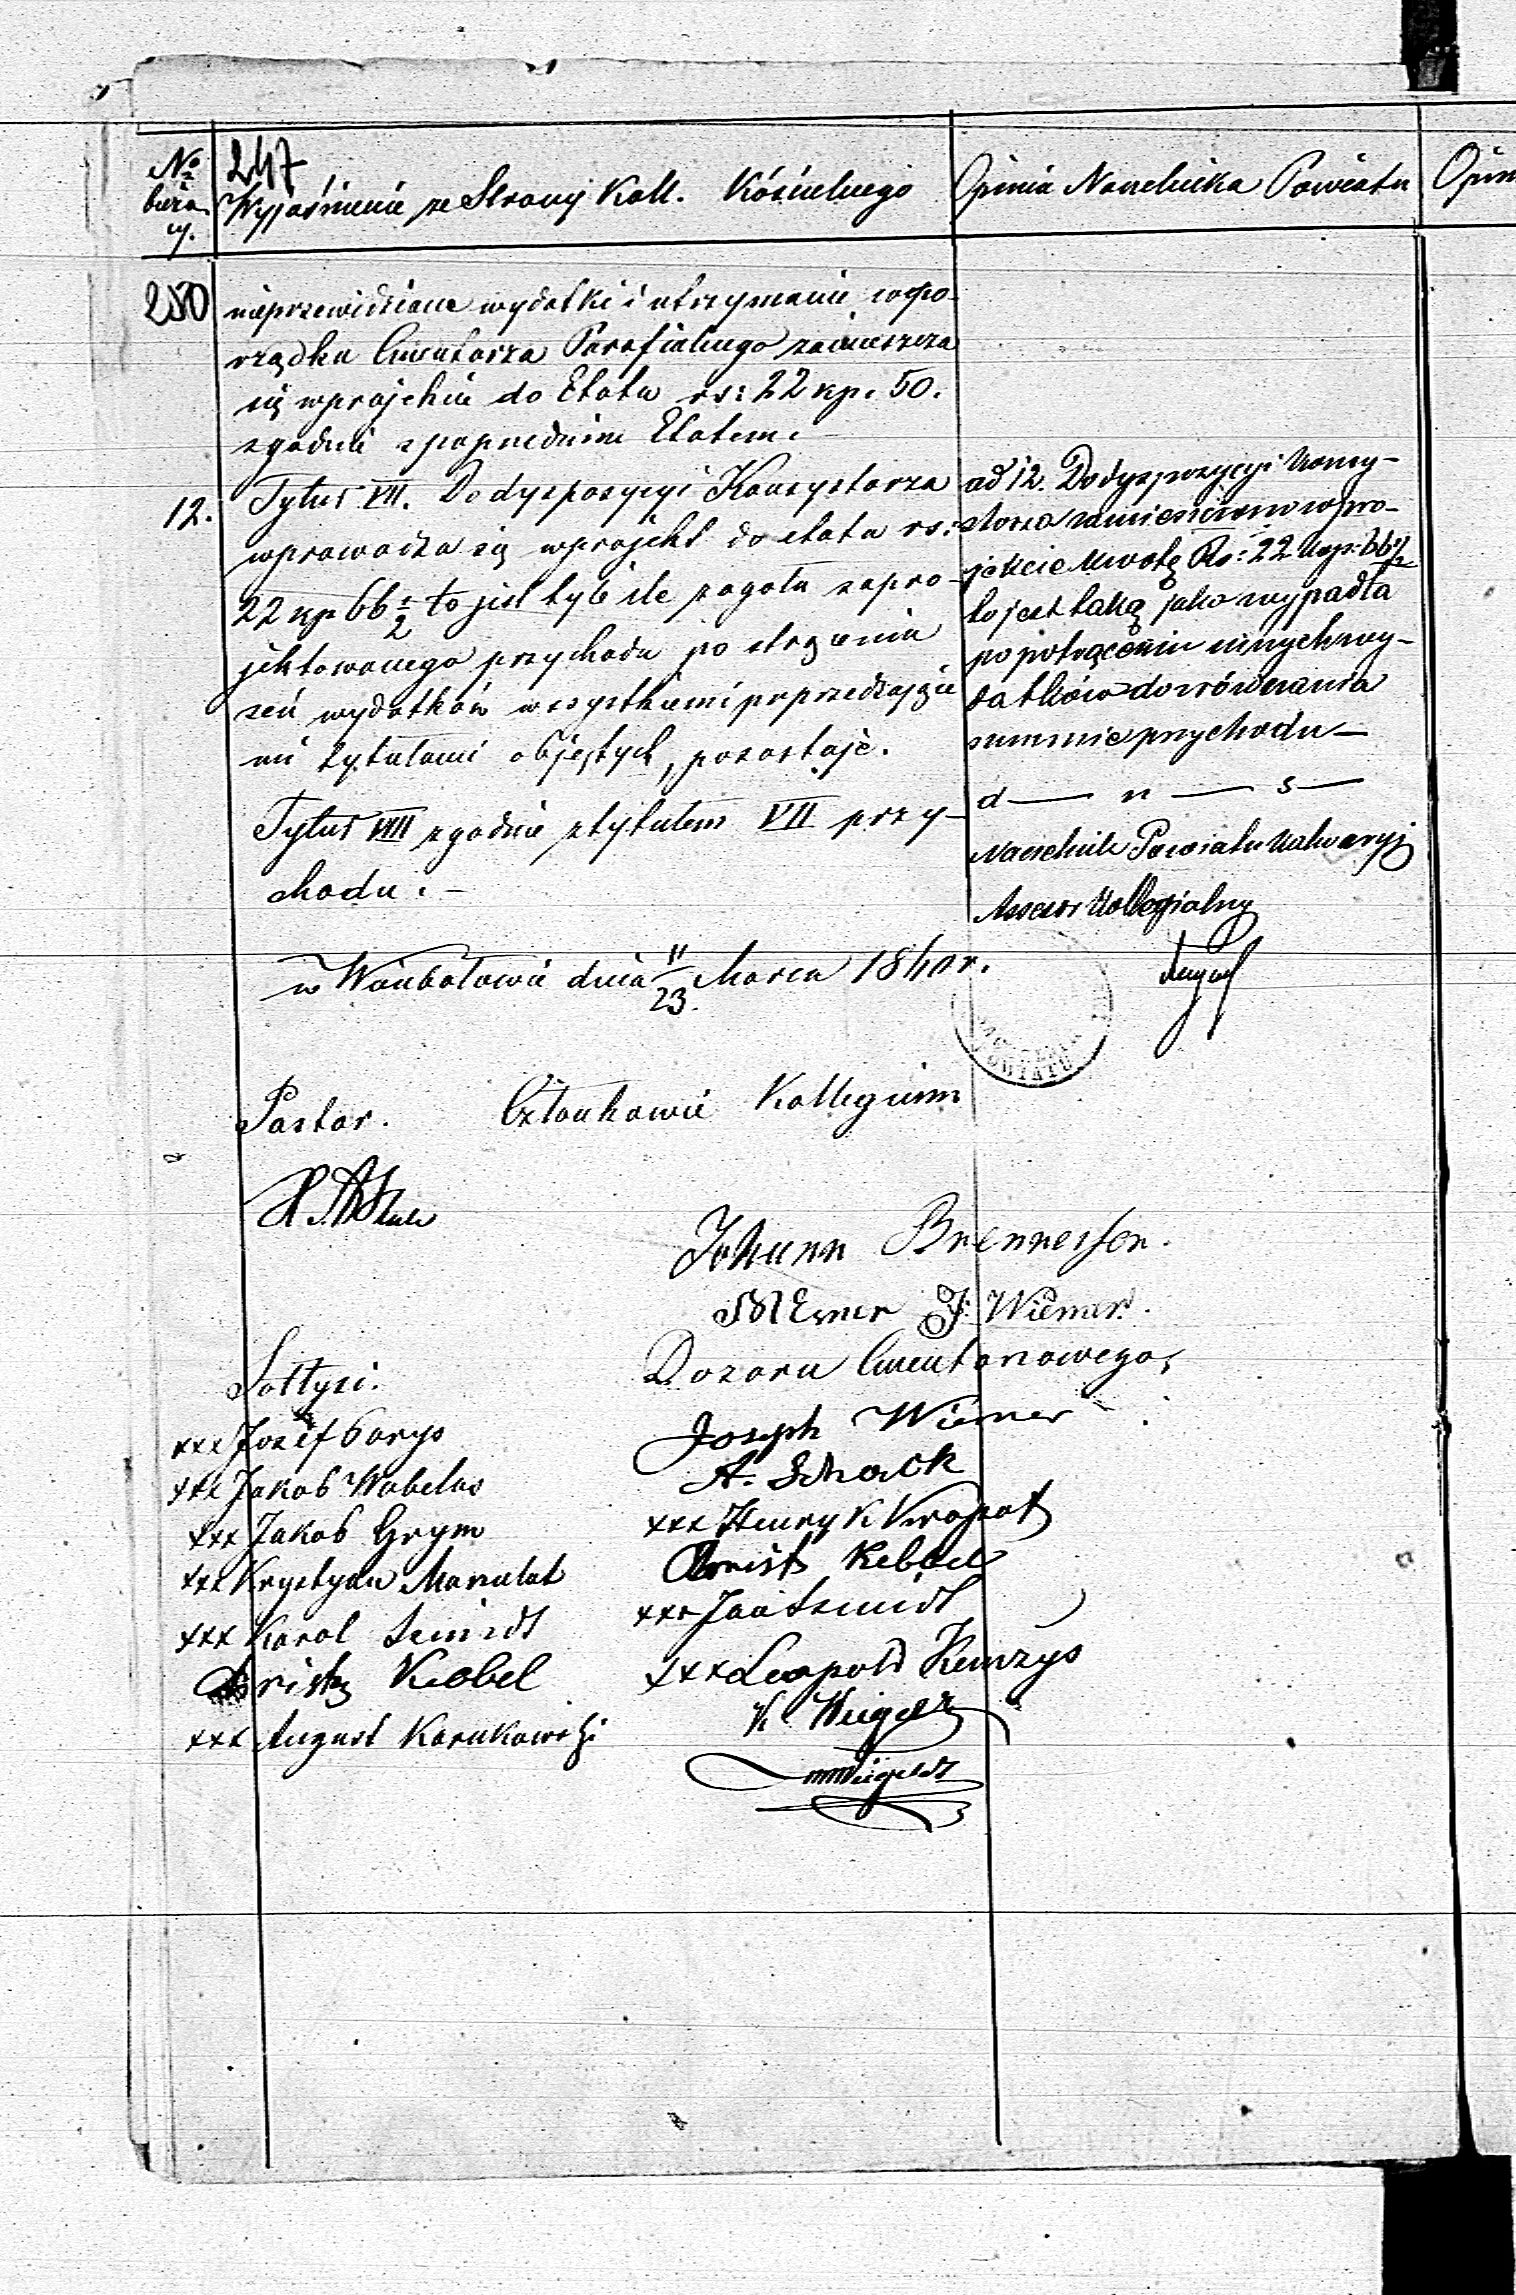 No bieżą
cy.
247
Wyjaśnienie ze Strony Koll. Kościelnego
Opinia Naczelnika Powiatu
Opin
250
nieprzewidziane wydatki i utrzymanie wpo-
rządku Cmentarza Parafialnego zamieszcza
się wprojekcie do Etatu rs: 22 kp. 50.
zgodnie z poprzednim Etatem.
12.
Tytuł VII. Do dyspozycyi Konsystorza
wprowadza się wprojekt do etatu rs:
22 kp 66 1/2 to jest tyle ile z ogółu zapro-
jektowanego przychodu po strąceniu
zeń wydatków wszystkiemi poprzedzające
mi tytułami objętych, pozostaje.
Tytuł VIII zgodnie z tytułem VII przy-
chodu. –
ad 12. Do dyspozycyi Konsy-
storza zamieszczono w pro-
jekcie kwotę Rs: 22 kop: 66 1/2
to jest taką jaka wypadła
po potrąceniu innych wy-
datków do zrównania
summie przychodu –
d — n — s —
Naczelnik Powiatu Kalwaryj
Assessor Kollegialny
w dnia 11/23. Marca 1840 r.
POWIATU
Pastor. Członkowie Kollegium
Johann Brenneisen.
J. Wiemer.
Dozoru Cmentarnowego,
Joseph Wiemer
A. Schack
xxx Henryk Kropat
Christ Kebbel
xxx Jan Szmidt
xxx Leopold Kemzys
K Weigelt
Weigeldt
Sołtysi.
xxx Józef Borys
xxx Jakob Wabelus
xxx Jakob Grym
xxx Krystyan Manulat
xxx Karol Szmidt
Christ Kebbel
xxx August Karukowski